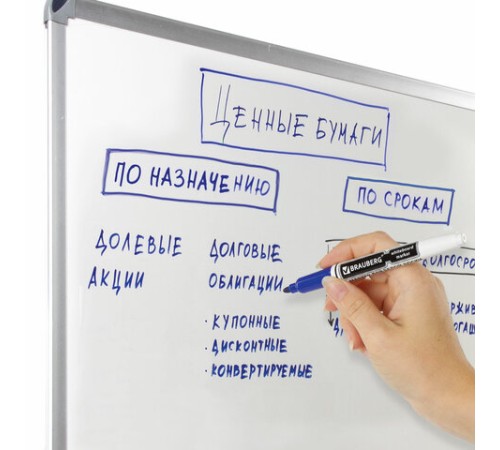 Ценные бумаги
по назначению
по срокам
долевые
акции
долговые
облигации
· купонные
· дисконтные
· конвертируемые
BRAUBERG
whiteboard
marker